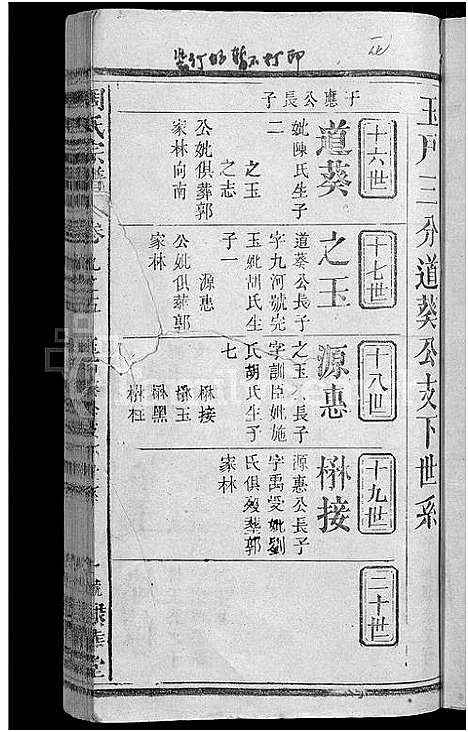 玉戶三分道葵公支下世系
十六世
于應公長子
道葵
妣陳氏生子
二
之玉
之志
公妣俱葬郭
家林向南
十七世
之玉
道葵公長子
字九河號完
玉妣胡氏生
子一
源惠
公妣俱葬郭
家林
十八世
源惠
之玉公長子
字訓臣妣施
氏胡氏生子
七
楙接
楙玉
楙黑
楙柱
十九世
楙接
源惠公長子
字禹受妣劉
氏俱歿葬郭
家林
二十世
周氏宗譜
卷